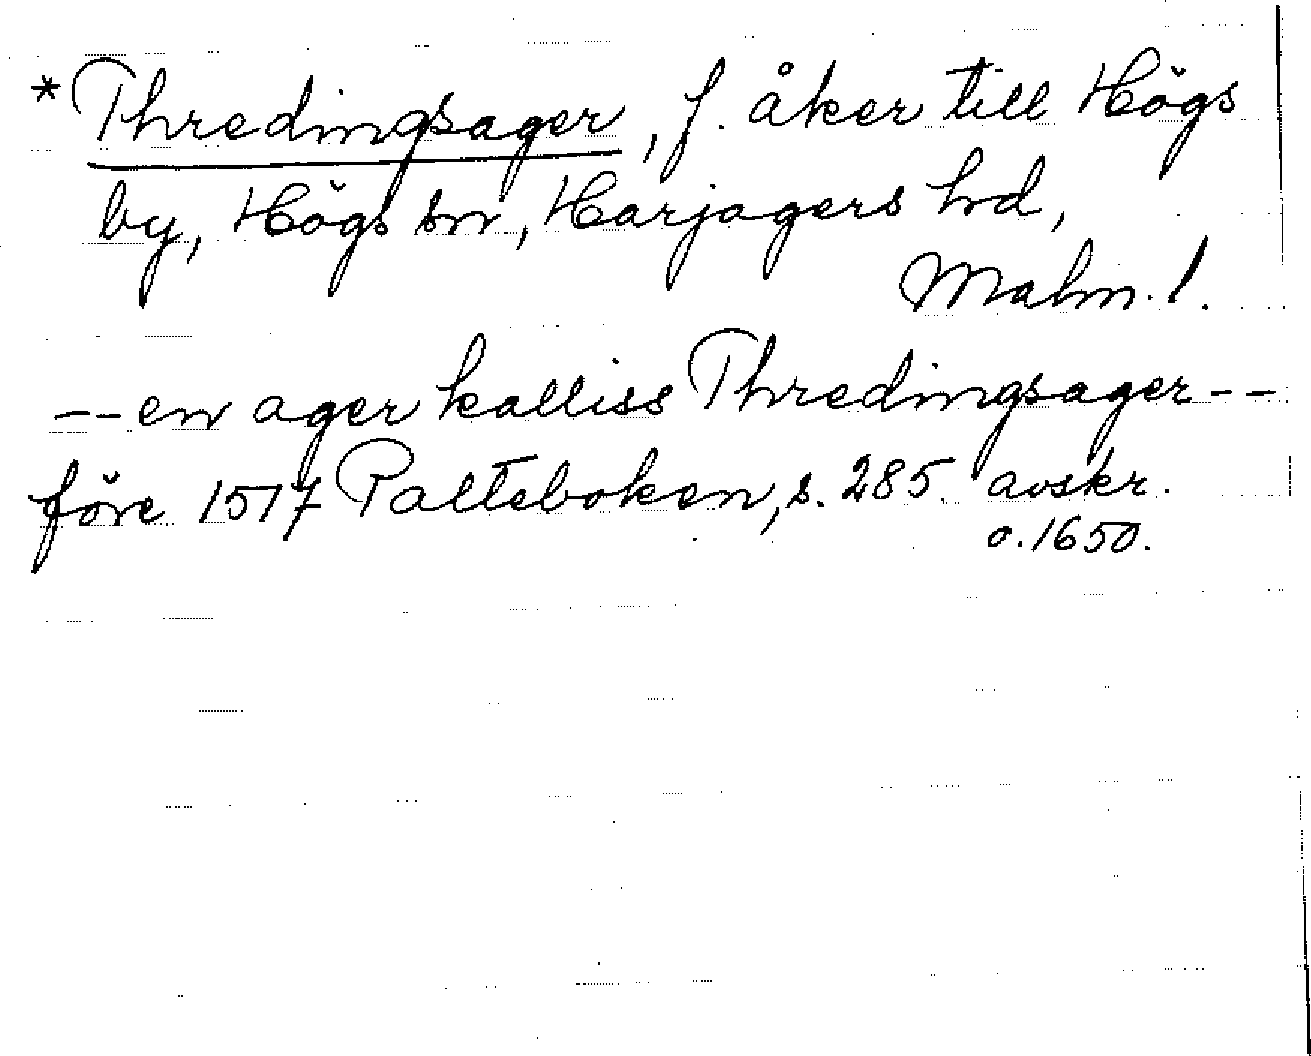 *Thredingsager, f. åker till Högs
by, Högs sn, Harjagers hd,
Malm. l.
-- en ager kalliss Thredingsager --
före 1517 Palteboken, s. 285. avskr.
o. 1650.